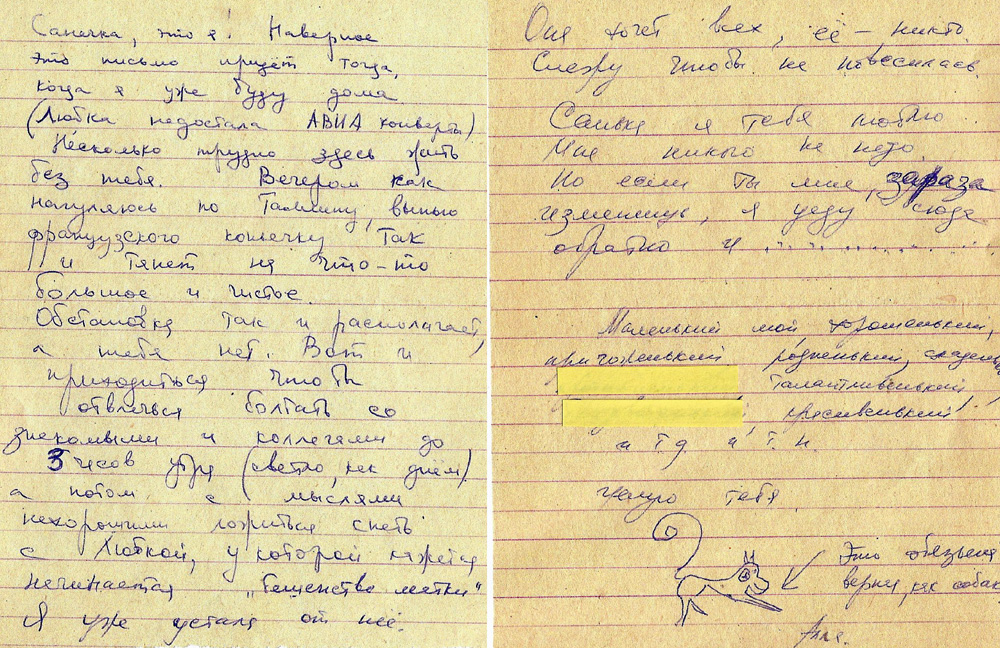 Санечка, это я! Наверное
это письмо придёт тогда,
когда я уже буду дома
(Любка недостала АВИА конверты)
Несколько трудно здесь жить
без тебя. Вечером как
нагуляюсь по Таллину, выпью
французского коньячку, так
и тянет на что-то
большое и чистое.
Обстановка так и располагает,
а тебя нет. Вот и
приходиться чтобы
отвлечься болтать со
знакомыми и коллегами до
3 часов утра (светло, как днём)
а потом с мыслями
нехорошими ложиться спать
с Любкой, у которой кажется
начинается „Бешенство матки"
Я уже устала от неё.
Она хочет всех, её – никто.
Слежу чтобы не повесилась.
Санька я тебя люблю
Мне никого не надо.
Но если ты мне, зараза
изменишь, я уеду сюда
обратно и ..............
Маленький мой, хорошенький,
пригоженький родненький,
талантливенький
красивенький!
и т д и т п.
целую тебя
Это обезьяна
верная, как собака
Алла.